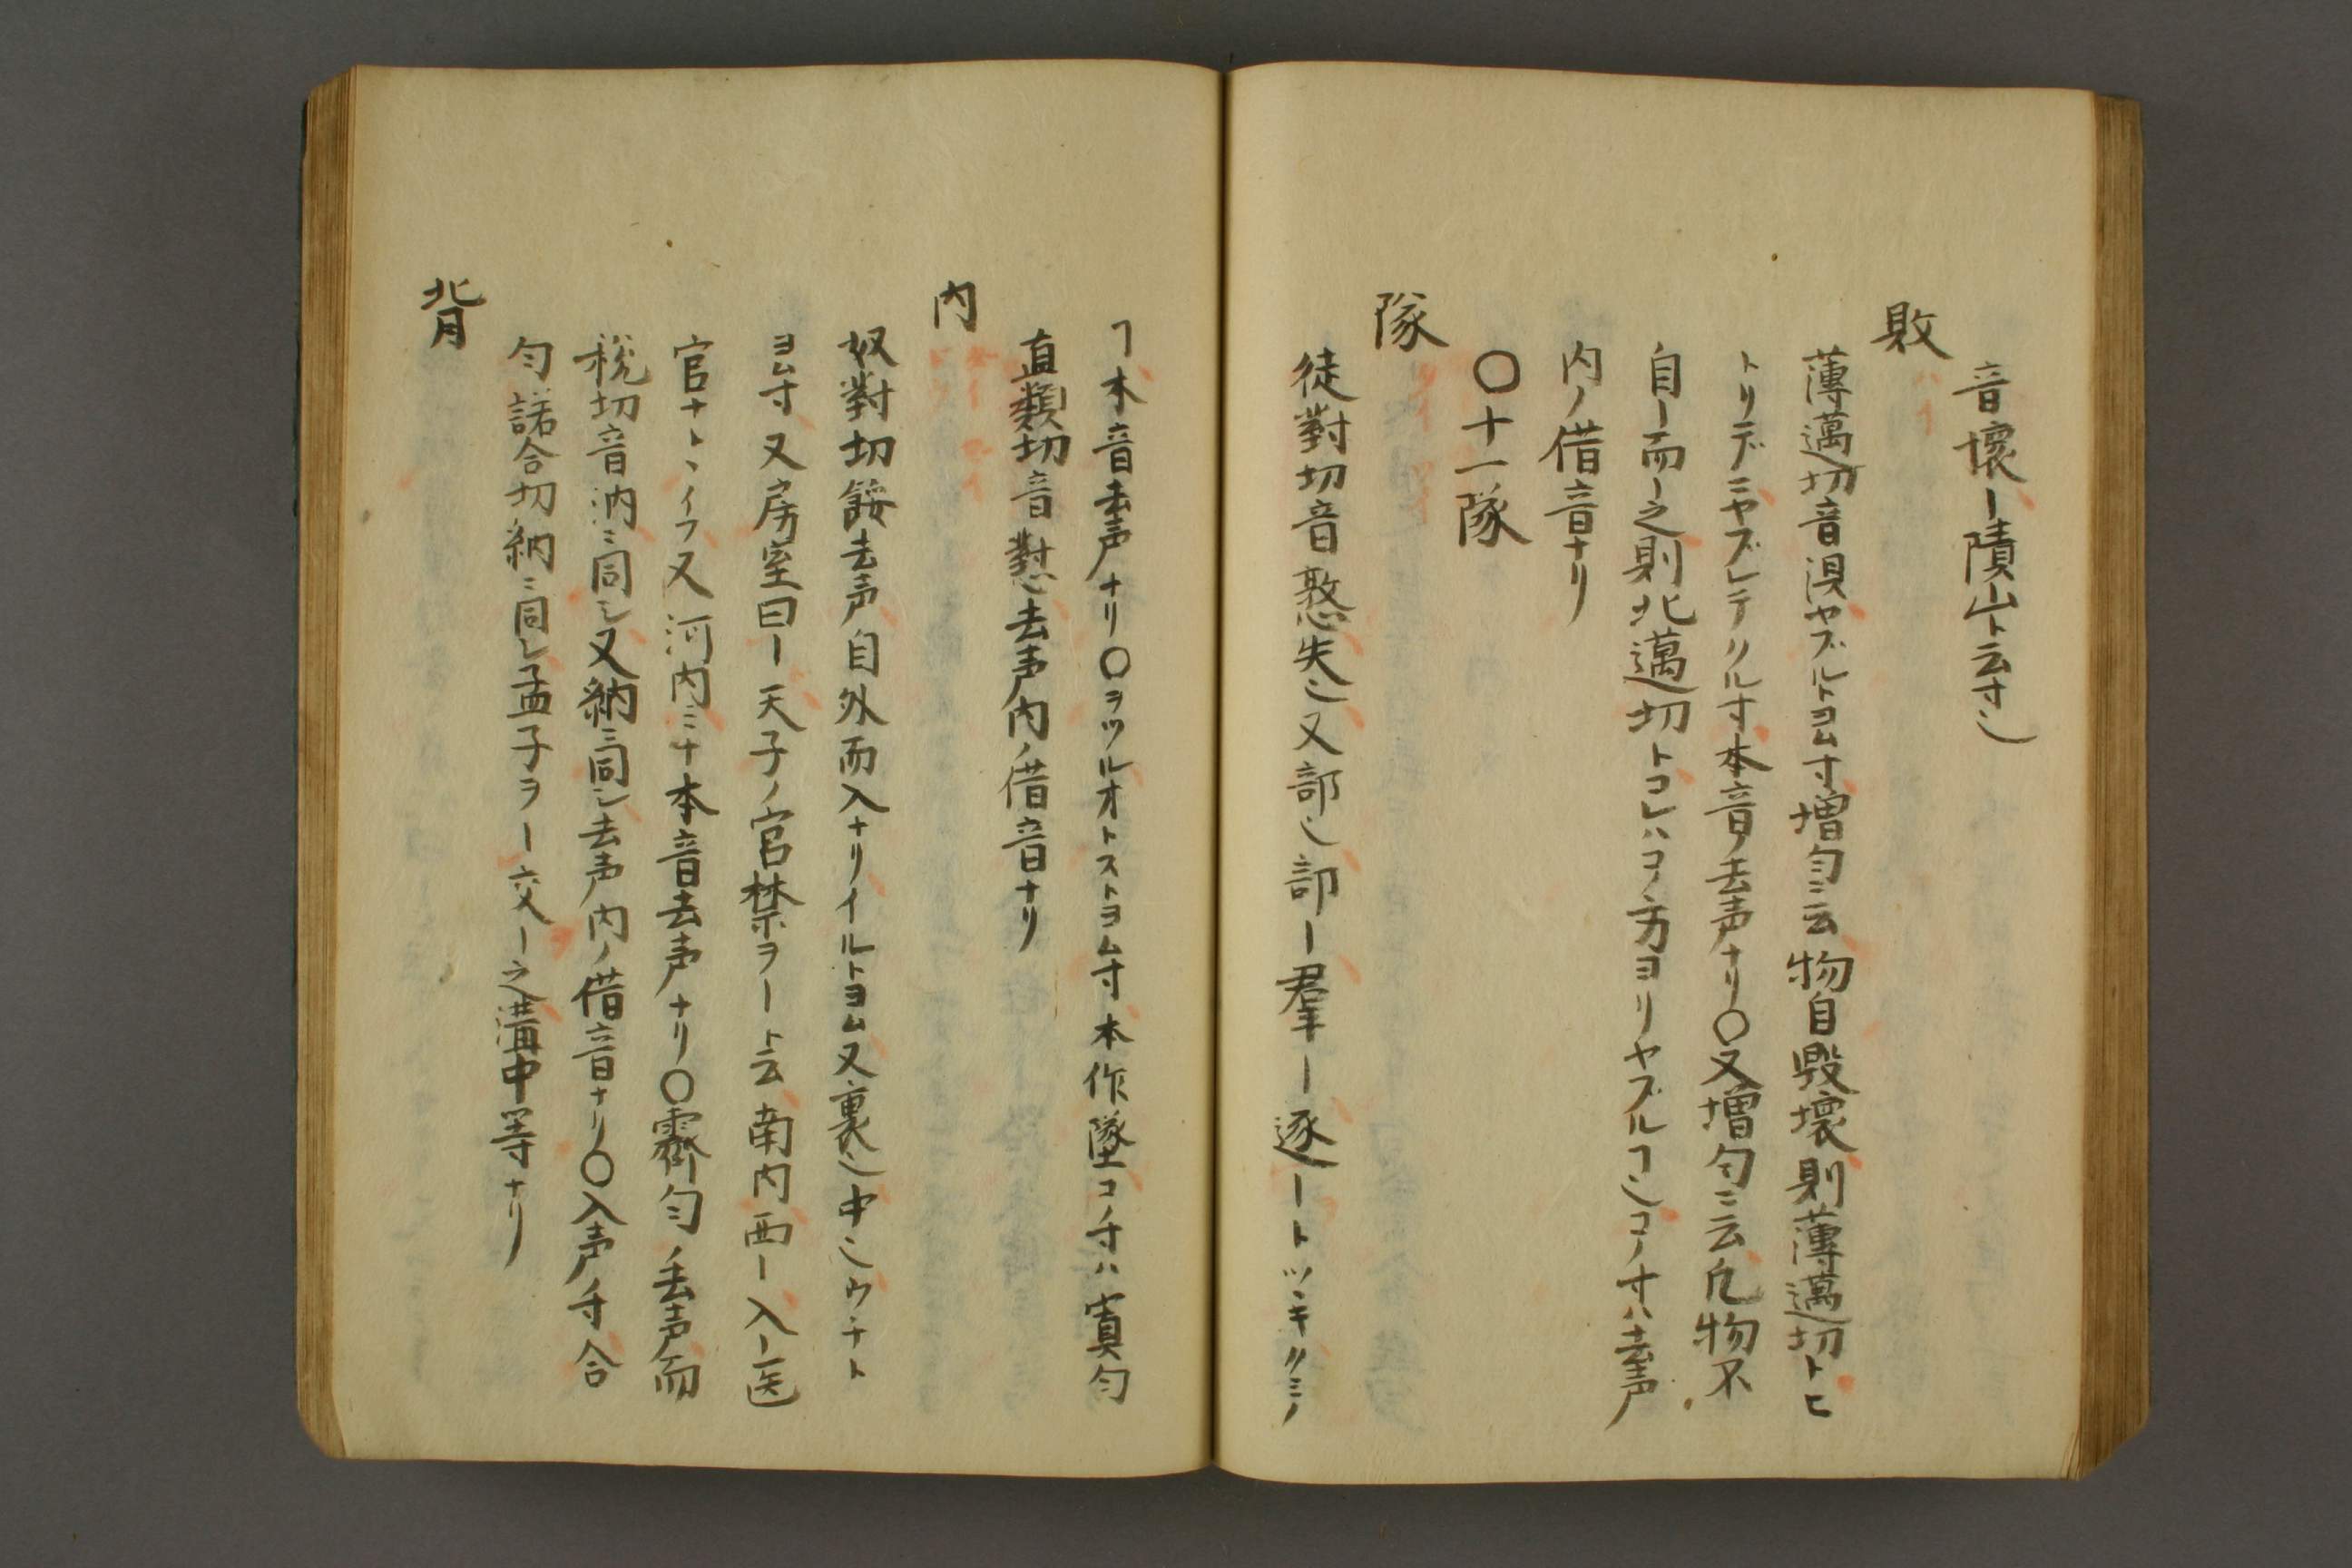 音壞ー隤山ト云寸也
敗
薄邁切音浿ヤブルトヨム寸増匀ニ云物自毀壞則薄邁切トヒ
トリデニヤブレテクル寸本音ノ去声ナリ〇又増匀ニ云凡物不
自ー而ー之則北邁切トコレハコノ方ヨリヤブルヿ也コノ寸ハ去声
内ノ借音ナリ
〇十一隊
隊
徒對切音憝失也又部也部ー羣ー逐ートツヾキクミノ
ヿ本音去声ナリ〇ヲツルオトストヨム寸本作墜コノ寸ハ寘匀
直類切音懟去声内ノ借音ナリ
内
奴對切餒去声自外而入ナリイルトヨム又裏也中也ウチト
ヨム寸又房室曰ー天子ノ宮禁ヲート云南内西ー入ー医
官ナトヽイフ又河内ミナ本音去声ナリ〇霽匀ノ去声而
税切音汭ニ同シ又納ニ同シ去声内ノ借音ナリ〇入声ノ寸合
匀諾合切納ニ同シ孟子ヲー交ー之溝中等ナリ
背